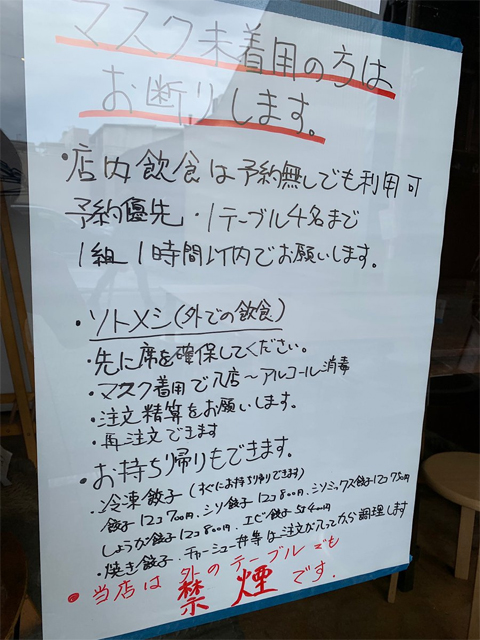 マスク未着用の方は
お断りします。
・店内飲食は予約無しでも利用可
予約優先・1テーブル4名まで
1組1時間以内でお願いします。
・ソトメシ(外での飲食)
・先に席を確保してください。
・マスク着用で入店〜アルコール消毒
・注文精算をお願いします。
・再注文できます
・お持ち帰りもできます。
・冷凍餃子(すぐにお持ち帰りできます)
餃子12コ700円、シソ餃子12コ800円、シソミックス餃子12コ750円
しょうが餃子12コ800円、エビ餃子5コ400円
・焼き餃子、チャーシュー丼等はご注文が入ってから調理します
・当店は外のテーブルでも
禁煙です。